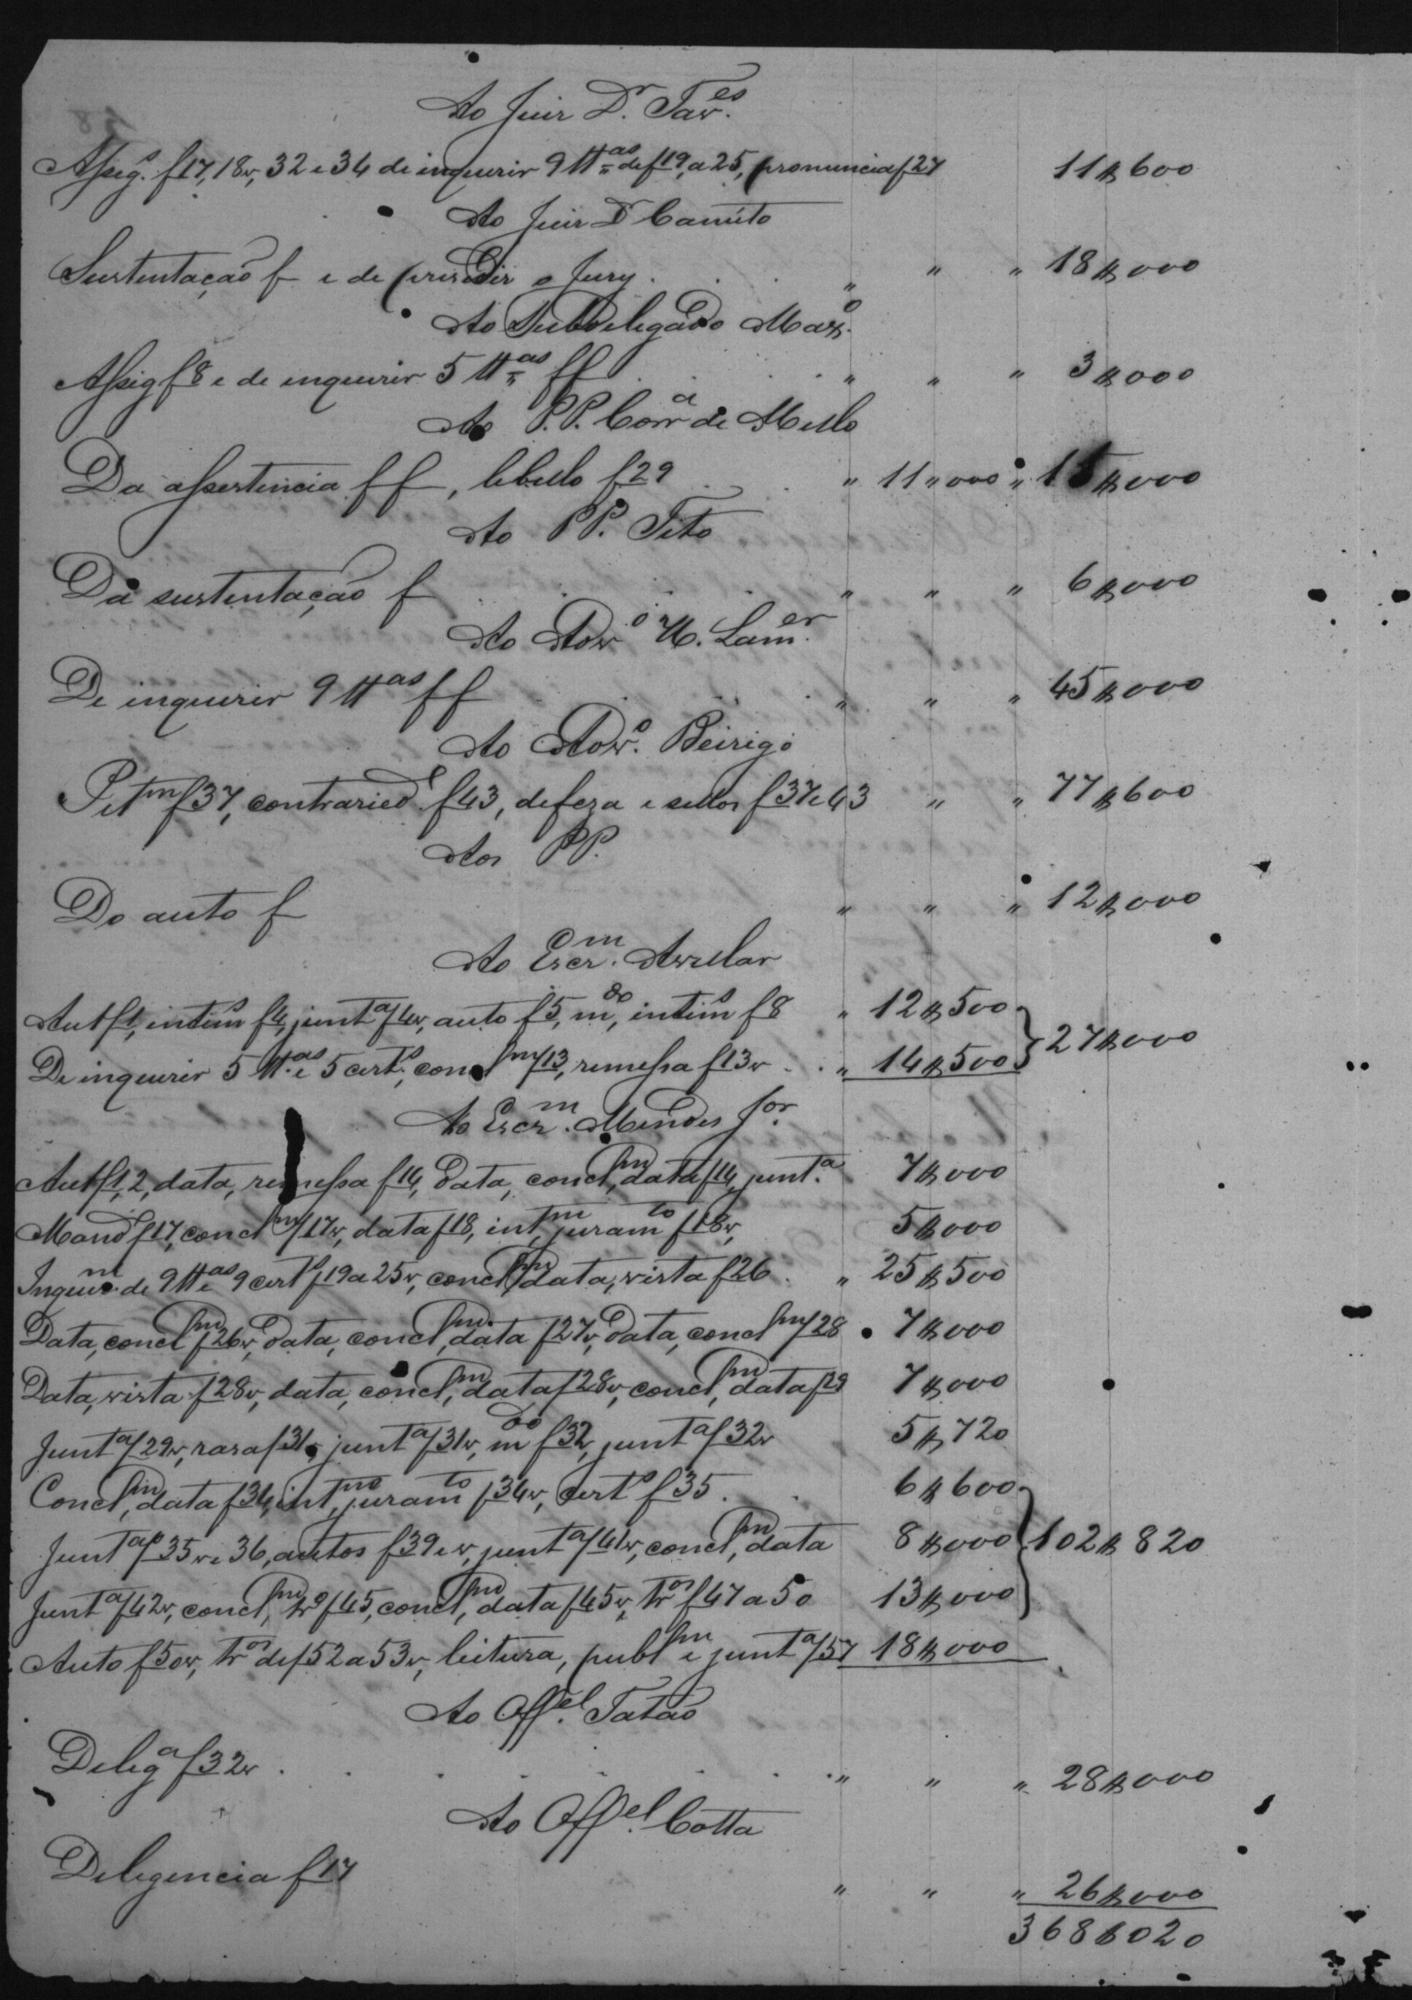 Ao Juiz Dr. Tav.es
Assig.s f17, 18v, 32 e 34 de inquerir 9 tt.as de f19, a 25, pronuncia f27 11$600
Ao Juiz Dr Canuto
Sustentação f e de presidir o Jury . . . " " " 18$000
Ao Subdelegado Max.o
Assig f8 e de inquerir 5 tt.as ff . . . " " " 3$000
Ao P.P. Corr.a de Mello
Da assistencia ff, libello f29 . . " 11"000 " 15$000
Ao PP. Tito
Da sustentação f . . . " " " 6$000
Ao Adv.o N. Lam.er
De inquerir 9 tt.as ff . . . " " " 45$000
Ao Adv.o Beirigo
Pet.m f37, contraried.e f43, defeza e sellos f37 e 43 " " 77$600
Aos PP.
Do auto f " " " 12$000
Ao Escr.m Avellar
Aut f1, intim.s f4, junt.a f4v, auto f5, m.do, intim.s f8 " 12$500
De inquerir 5 tt.as e 5 cert.s, concl.m f13, remessa f13v . . " 14$500 27$000
Ao Escr.m Mendes J.or
Aut f1, 2, data, remessa f14, data, concl.m, data f14, junt.a 7$000
Mand.o f17, concl.m f17v, data f18, int.m, juram.to f18v, 5$000
Inquir.m de 9 tt.as e 9 cert.s f19 a 25v, concl.m, data, vista f26 . " 25$500
Data, concl.m f26v, data, concl.m, data f27v, data, concl.m f28 7$000
Data, vista f28v, data, concl.m, data f28v, concl.m, data f29 7$000
Junt.a f29v, rasa f31, junt.a f31v, m.do f32, junt.a f32v 5$720
Concl.m, data f34, int.m, juram.to f34v, cert.s f35 . . 6$600
Junt.a f35v e 36, autos f39 e v, junt.a f41v, concl.m, data 8$000 102$820
Junt.a f42v, concl.m, tr.o f45, concl.m, data f45v, tr.os f47 a 50 13$000
Auto f50v, tr.os de f52 a 53v, leitura, publ.m e junt.a f57 18$000
Ao Off.el Tatão
Delig.a f32v . . . . " " " 28$000
Ao Off.el Cotta
Deligencia f17 " " " 26$000
368$020